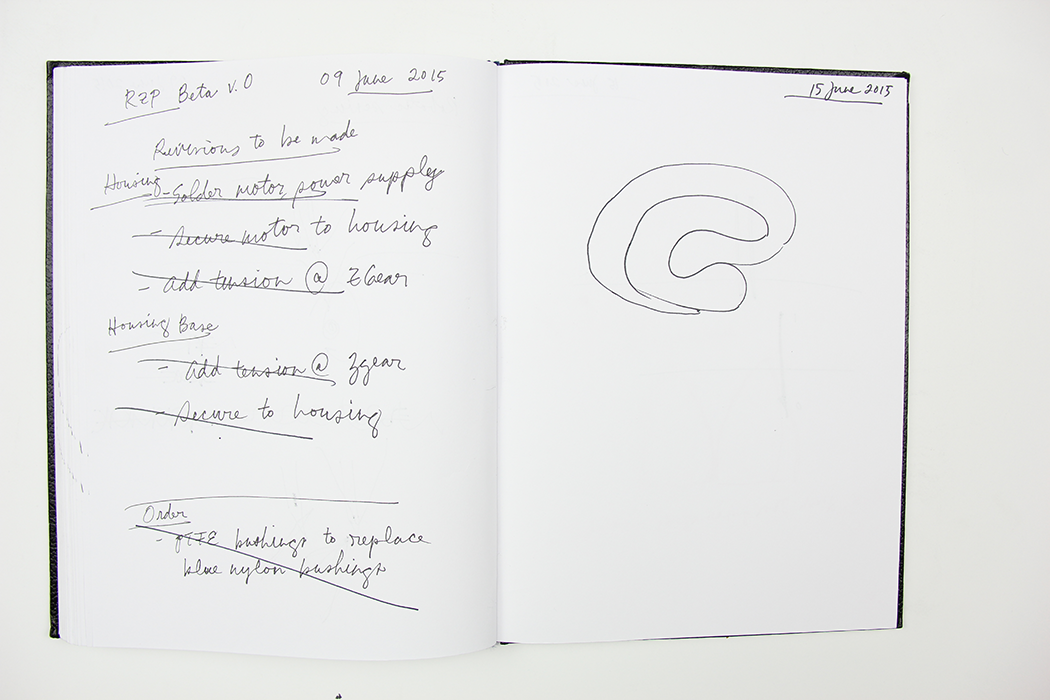 RZP Beta v.0 09 June 2015
Revisions to be made
Housing - Solder motor power supply
- Secure motor to housing
- add tension @ ZGear
Housing Base
- add tension @ Zgear
- Secure to housing
Order
- PTFE bushings to replace
blue nylon bushings
15 June 2015